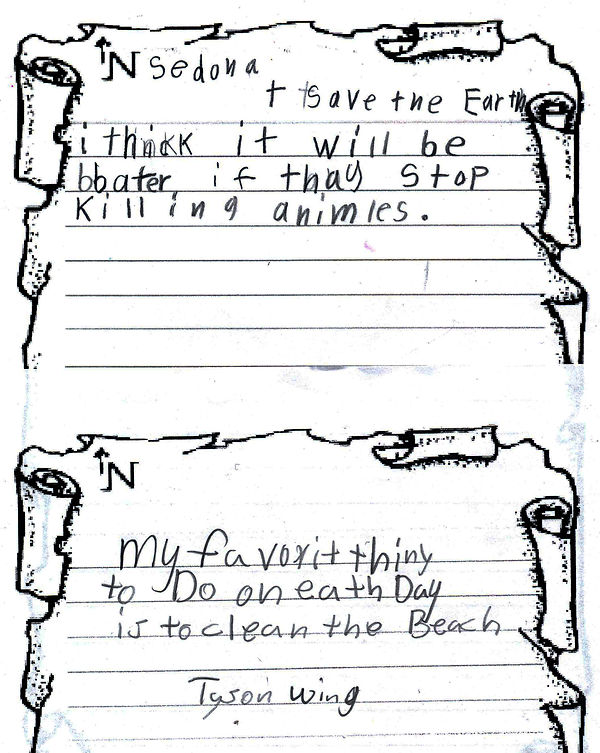 N Sedona
t Save the Earth
i thinkk it will be
bbater if thay stop
killing animles.
N
My favorit thing
to Do on eath Day
is to clean the Beach
Tyson Wing